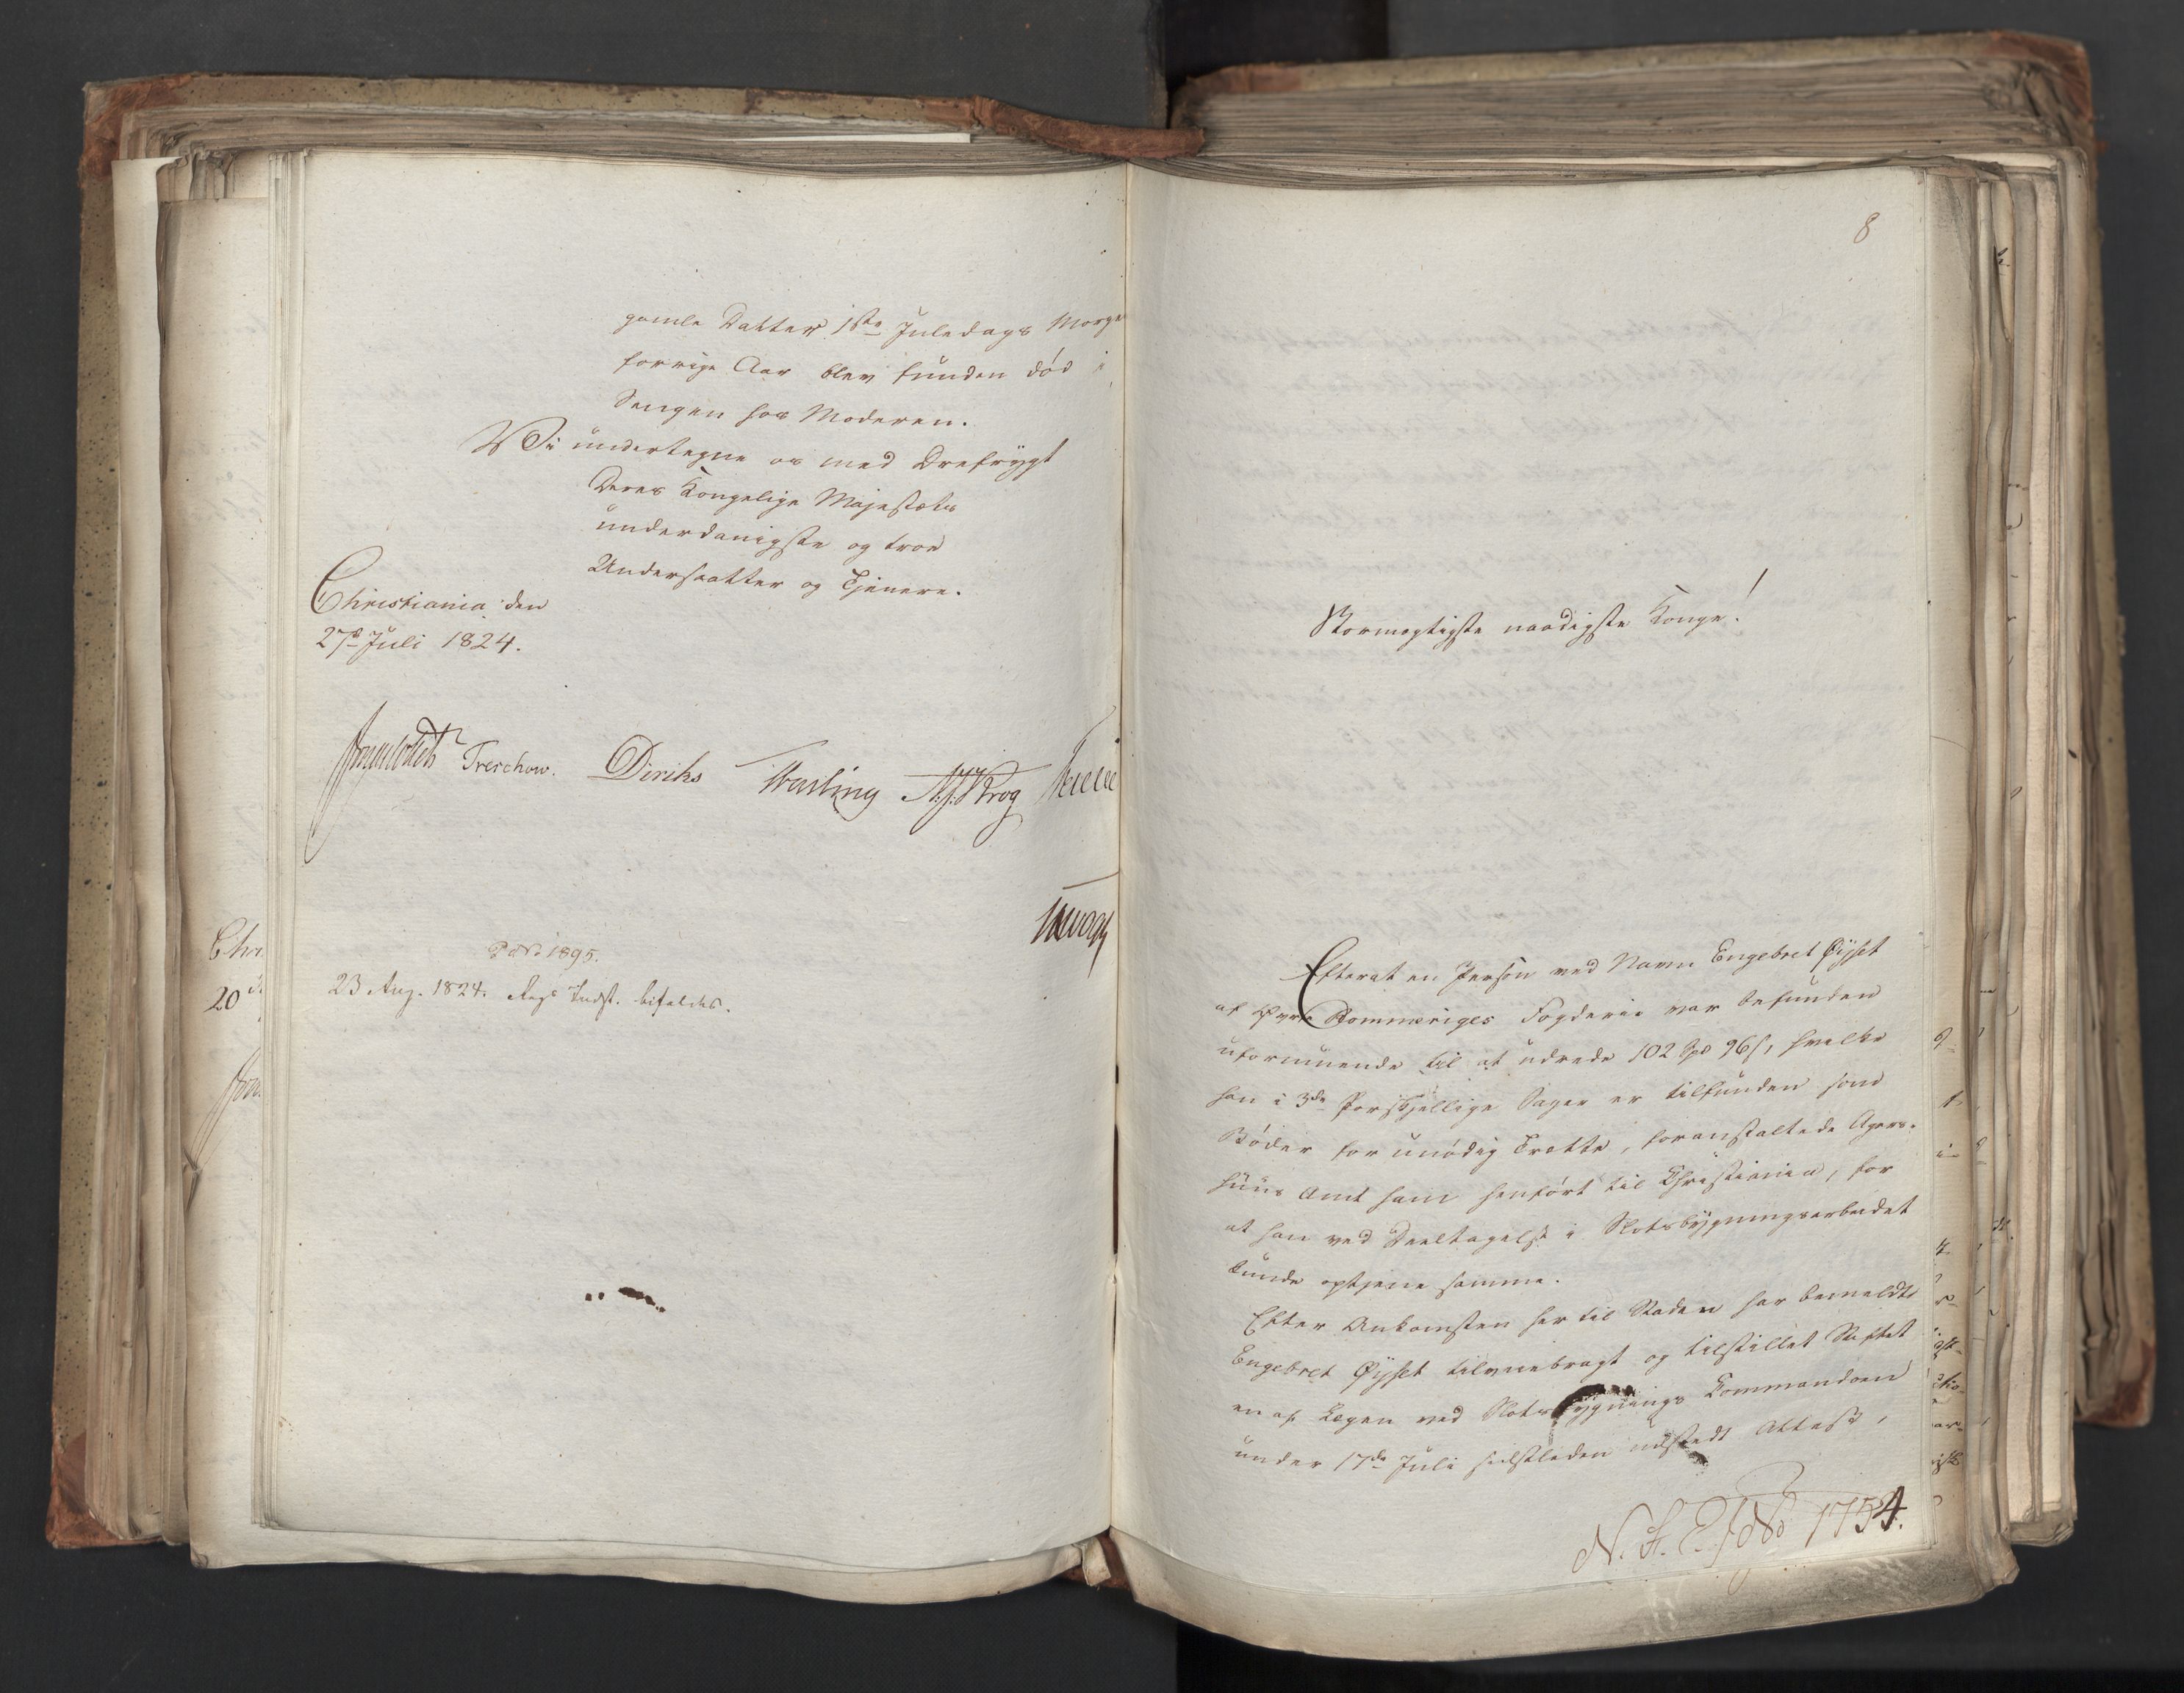 gamle Datter 1ste Juledags Morge
forrige Aar blev funden død i
Sengen hos Moderen.
Vi undertegne os med Ærefrygt
Deres Kongelige Majestæts
underdanigste og troe
Undersaatter og Tjenere.
Christiania den
27de Juli 1824.
Treschow. Diriks Fasting A. J. Krog
P No 1895.
23 Aug. 1824. Regs Indst. bifaldes.
Chri
20
8
Stormægtigste naadigste Konge!
Efterat en Person ved Navn Engebret Øyset
af Øvre Rommeriges Fogderie var befunden
uformuende til at udrede 102 Spd 96 s, hvilke
han i 3de forskjellige Sager er tilfunden som
Bøder for unødig Trætte, foranstaltede Agers-
huus Amt ham henført til Christiania, for
at han ved Deeltagelse i Slotsbygningsarbeidet
kunde optjene samme.
Efter Ankomsten her til Staden har bemeldte
Engebret Øyset tilveiebragt og tilstillet Stiftet
en af Lægen ved Slotsbygnings Kommandoen
under 17de Juli sidstleden udstedt Attest,
No 1754.